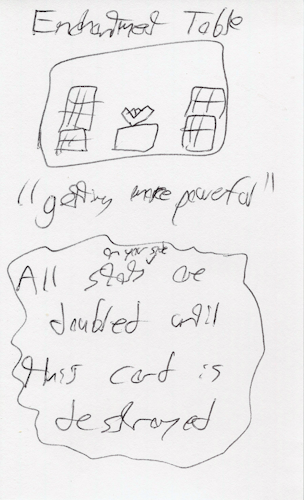 Enchantment Table
"getting more powerful"
on your side
All stats are
doubled until
this card is
destroyed